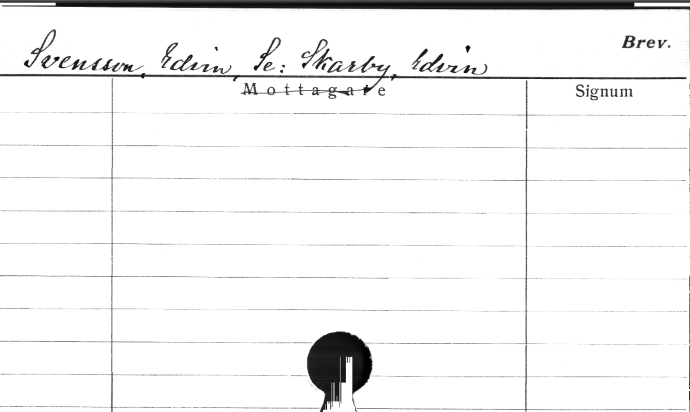 Brev.
Svensson, Edvin, Se: Skarby, Edvin
Mottagare Signum